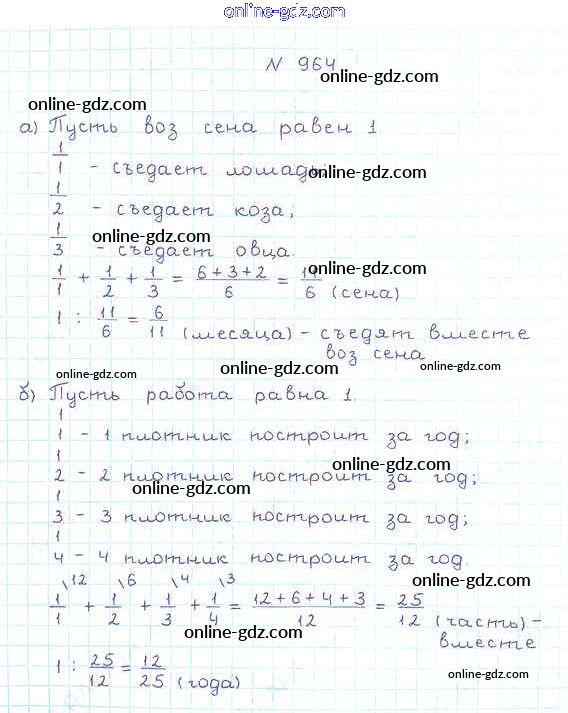 online-gdz.com
N 964
online-gdz.com
online-gdz.com
а) Пусть воз сена равен 1
1/1 - съедает лошадь; online-gdz.com
1/2 - съедает коза;
online-gdz.com
1/3 - съедает овца.
1/1 + 1/2 + 1/3 = (6+3+2)/6 = 11/6 (сена)
online-gdz.com
1 : 11/6 = 6/11 (месяца) - съедят вместе
воз сена
online-gdz.com online-gdz.com online-gdz.com
б) Пусть работа равна 1.
1/1 - 1 плотник построит за год;
online-gdz.com
1/2 - 2 плотник построит за год;
online-gdz.com
1/3 - 3 плотник построит за год;
1/4 - 4 плотник построит за год.
online-gdz.com
\12 \6 \4 \3
1/1 + 1/2 + 1/3 + 1/4 = (12+6+4+3)/12 = 25/12 (часть) -
online-gdz.com
вместе
1 : 25/12 = 12/25 (года)
online-gdz.com